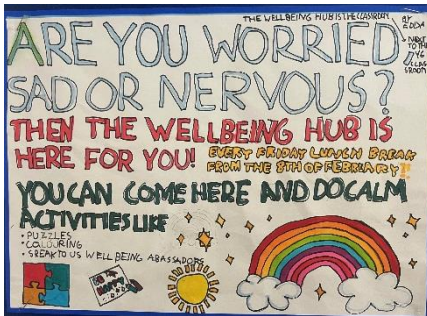 THE WELLBEING HUB IS THE CLASSROOM
NEXT
TO THE
Y6
CLAS
SROOM
ARE YOU WORRIED
SAD OR NERVOUS?
THEN THE WELLBEING HUB IS
HERE FOR YOU!
EVERY FRIDAY LUNCH BREAK
FROM THE 8TH OF FEBREARY!!
YOU CAN COME HERE AND DO CALM
ACTIVITIES LIKE
• PUZZLES
• COLOURING
• SPEAK TO US WELL BEING ABASSADORS